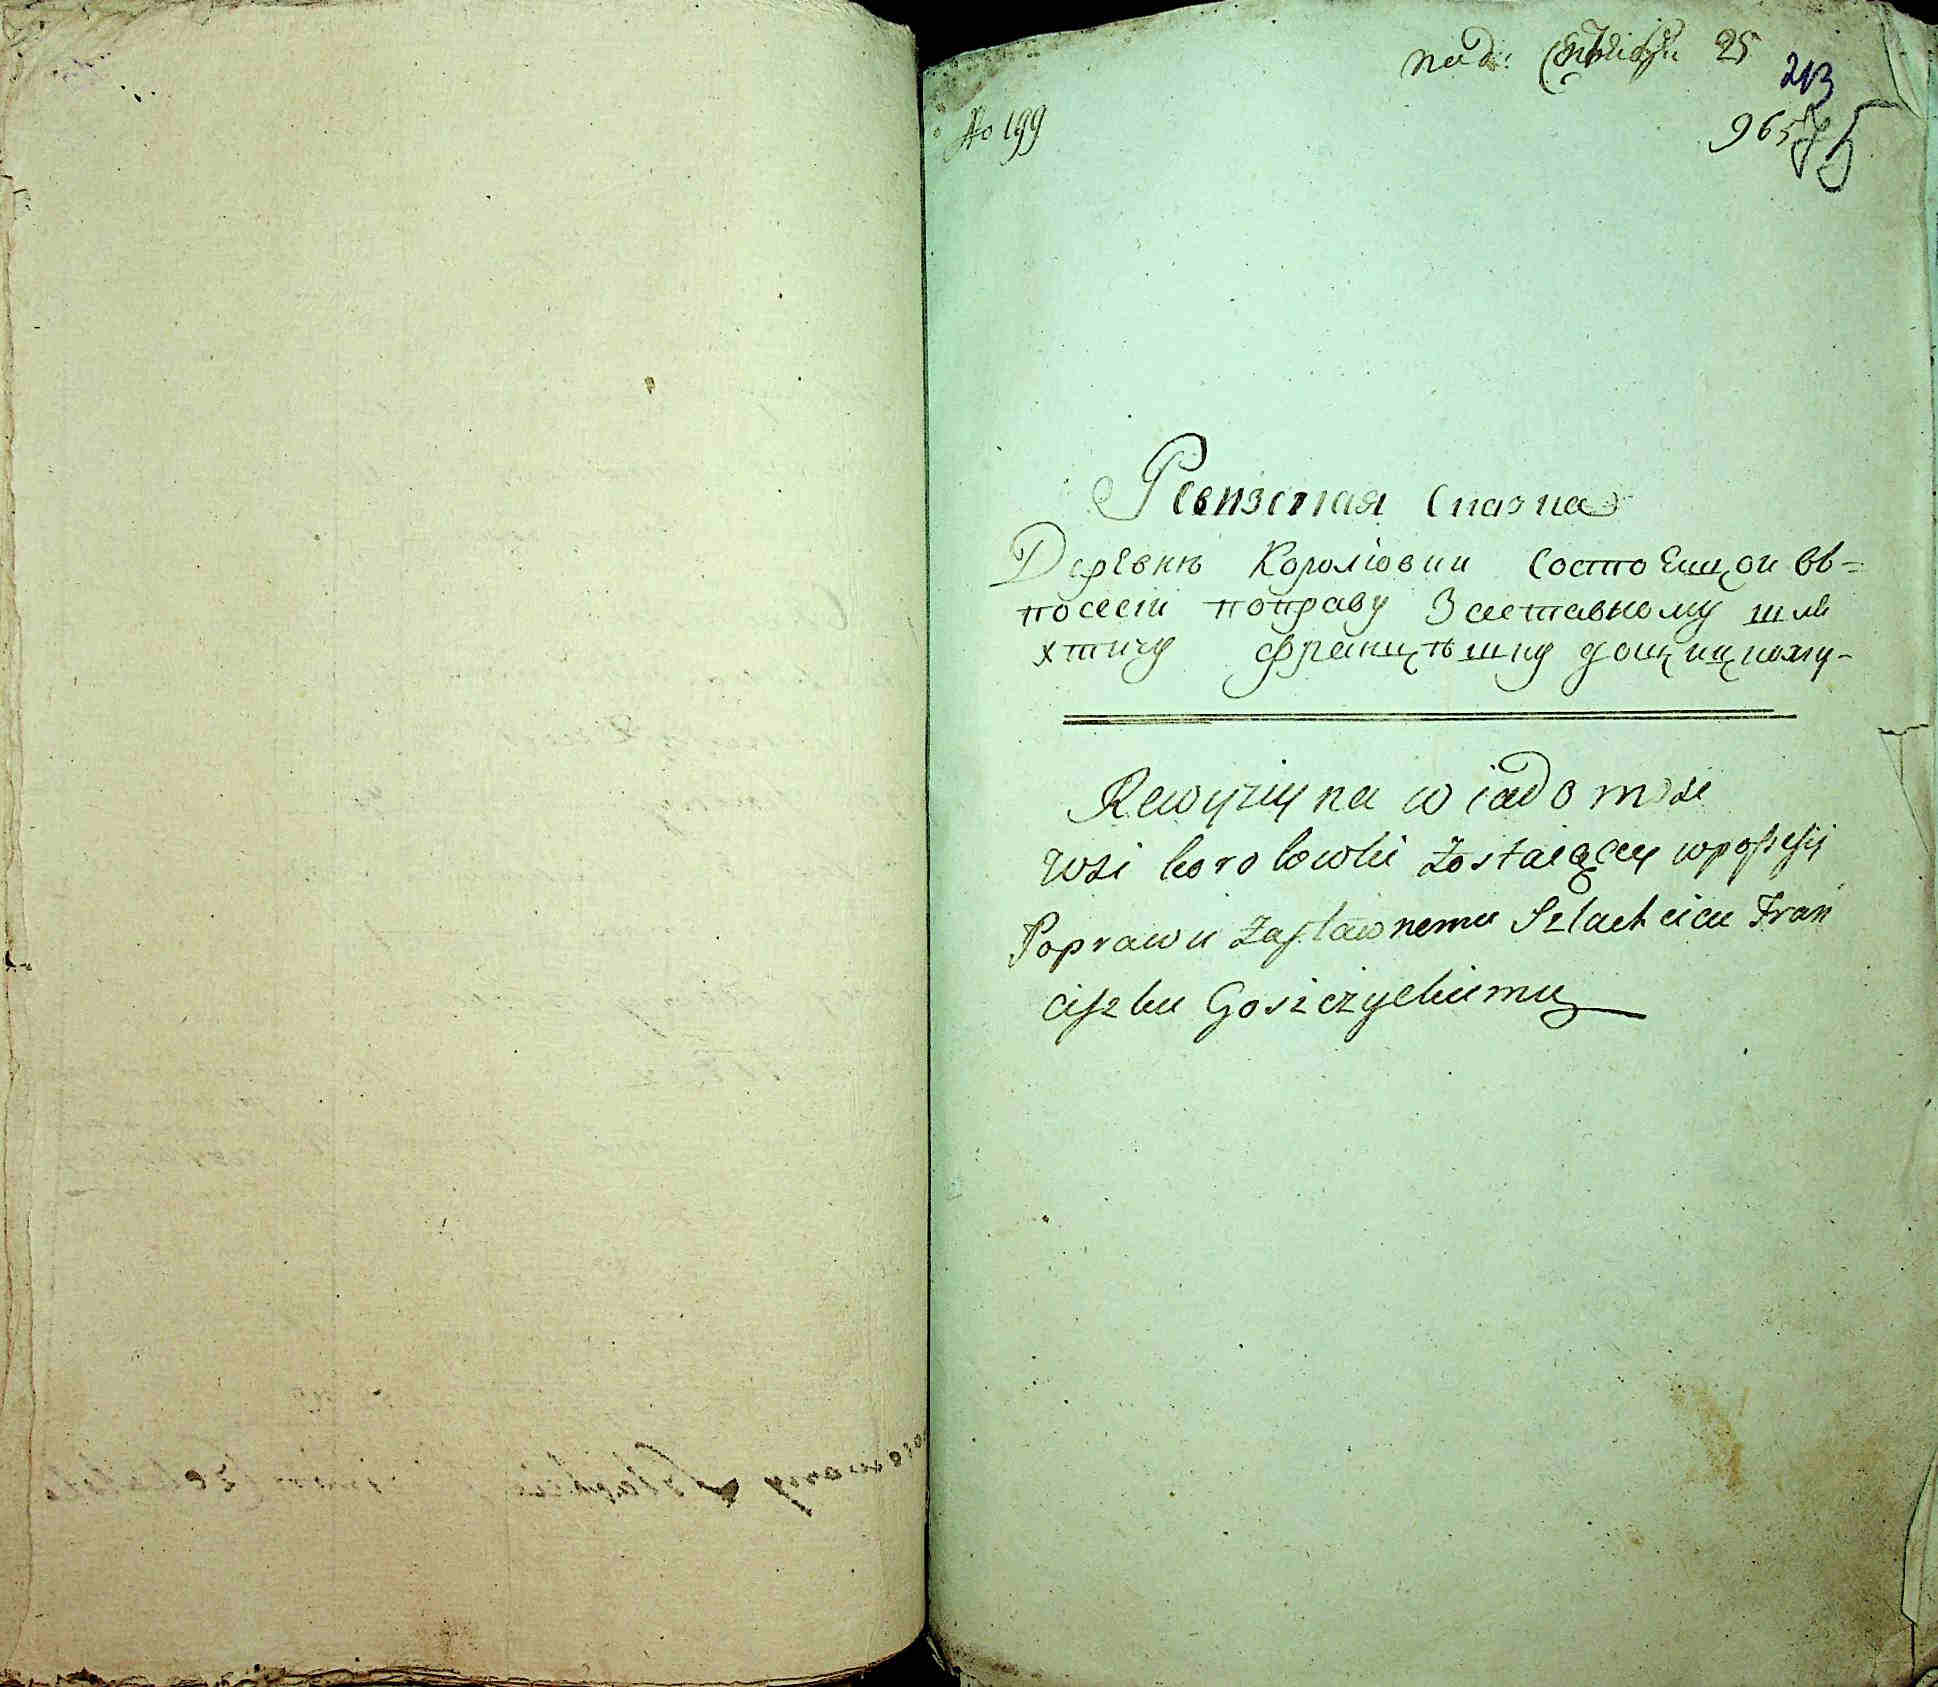 № 199
под: Сентября 25
213
965
75
Ревизская сказка
Деревнѣ Королювки состоЕщои въ=
посесіи поправу Заставному шля
хтичу францѣшку гощицкому-
Rewizyina wiadomość
Wsi korolowki Zostaiącey wpossesyi
Poprawu Zastawnemu Szlachcicu Fran
ciszku Goszczyckiemu